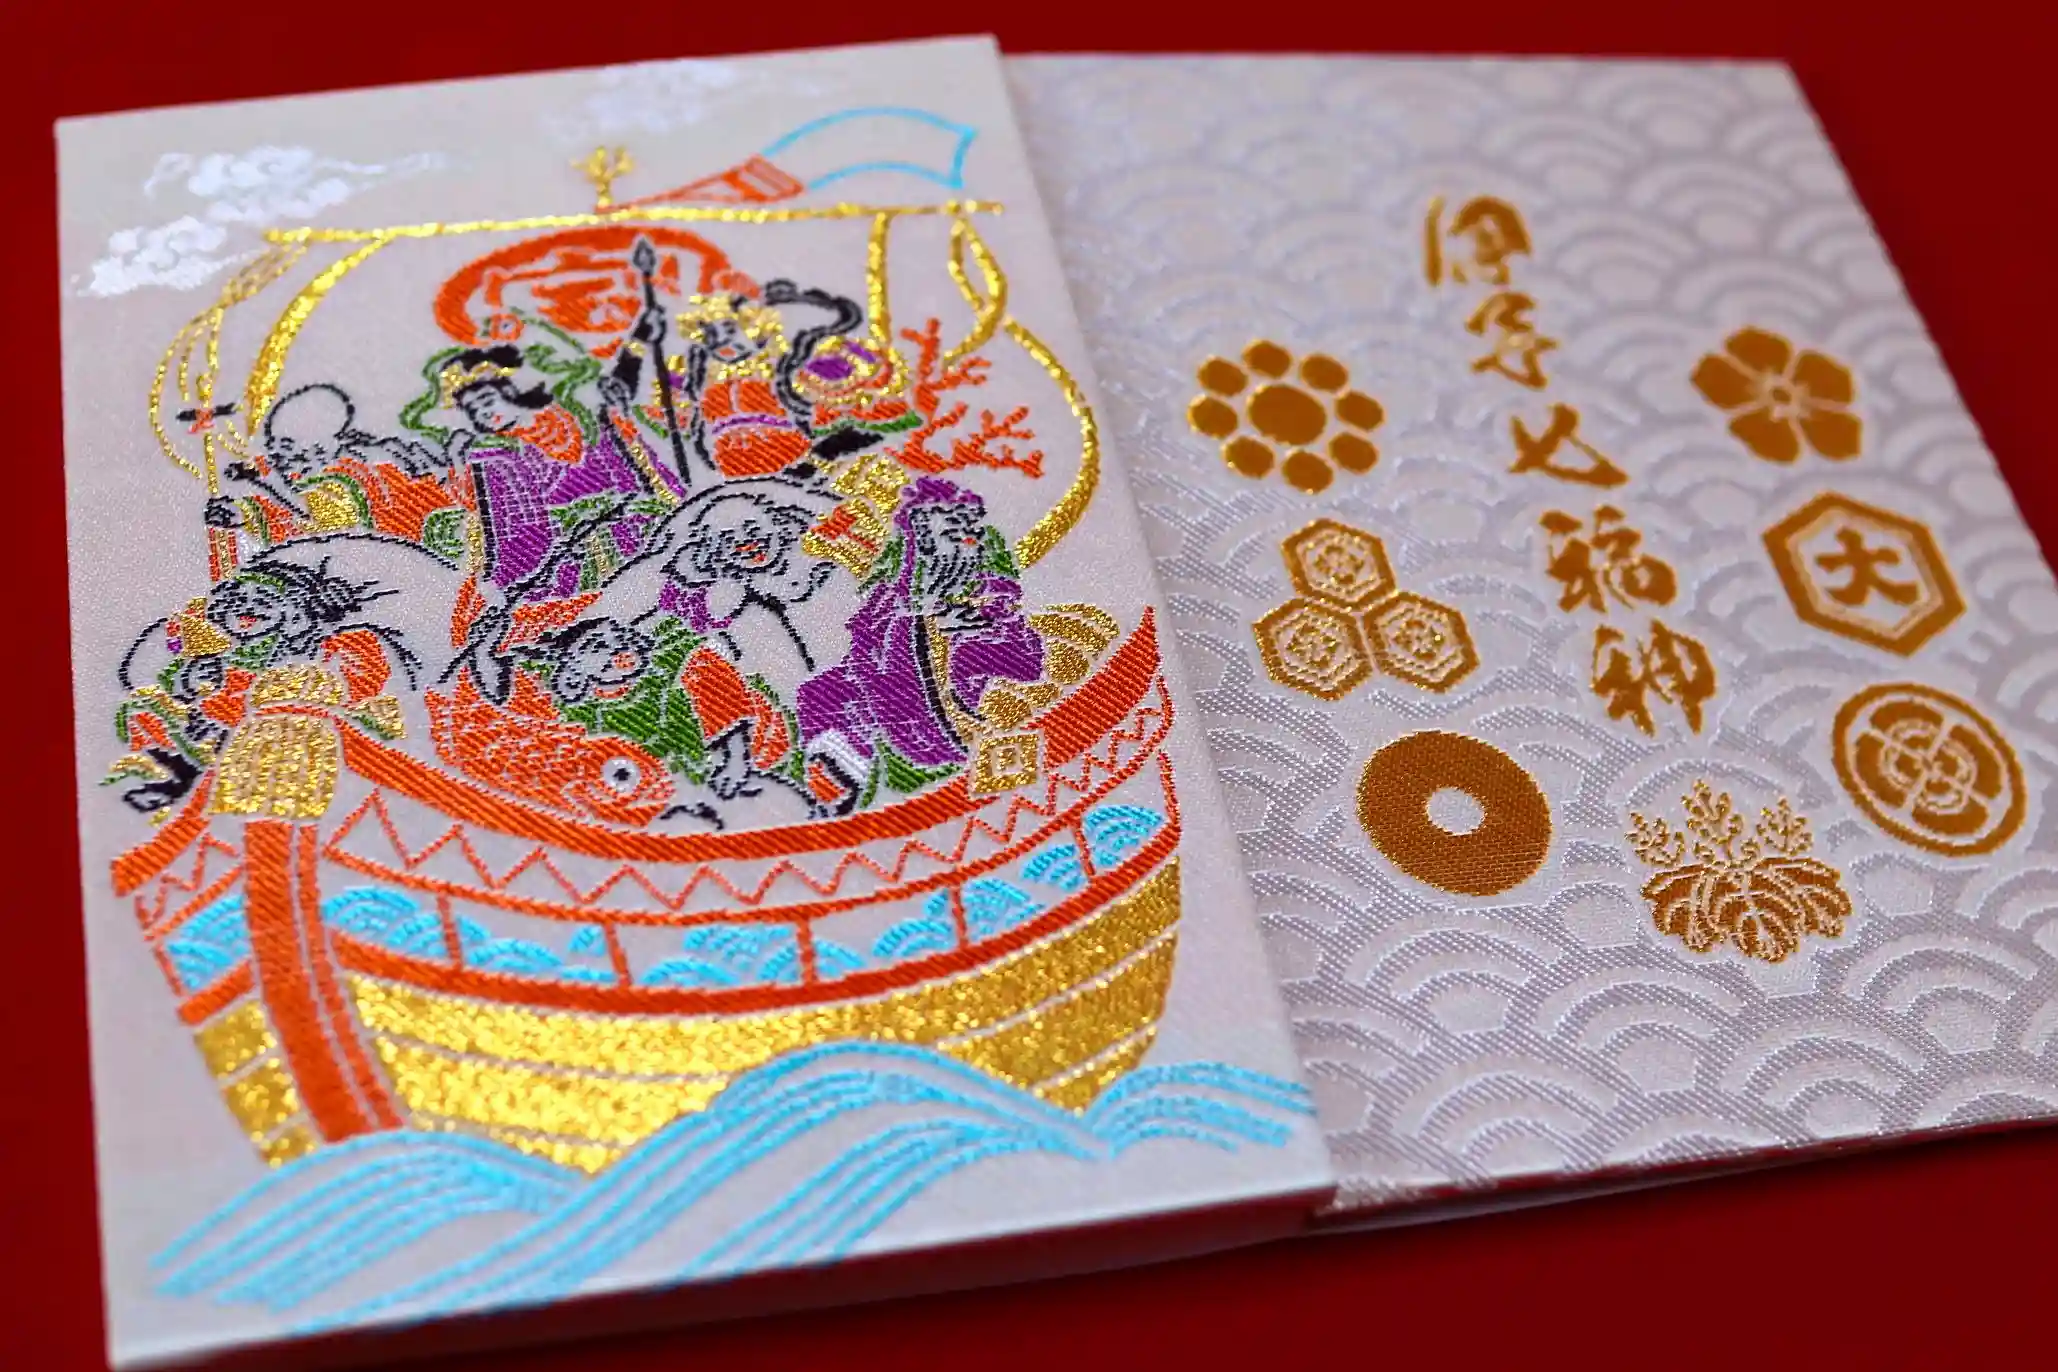 伊予七福神
大